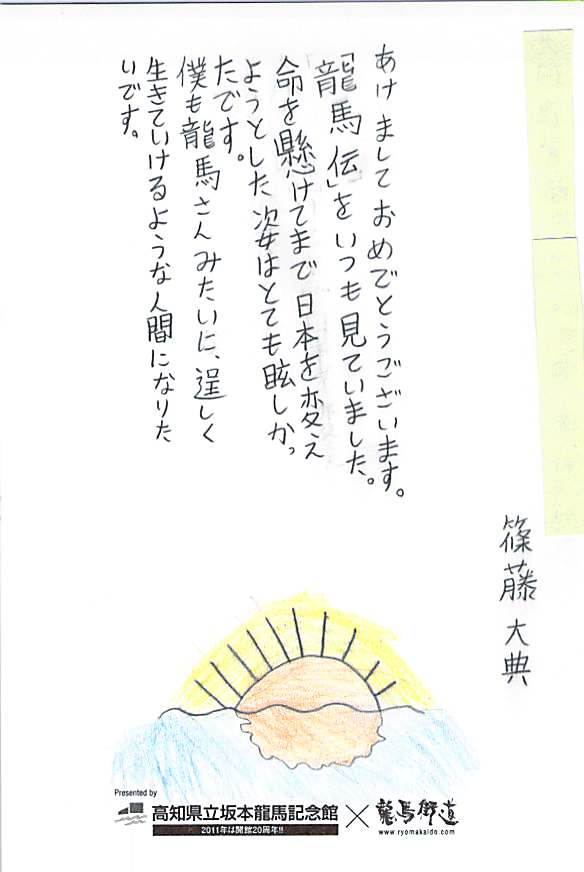 あけましておめでとうございます。
「龍馬伝」をいつも見ていました。
命を懸けてまで日本を変え
ようとした姿はとても眩しかっ
たです。
僕も龍馬さんみたいに、逞しく
生きていけるような人間になりた
いです。
篠藤 大典
Presented by
高知県立坂本龍馬記念館
2011年は開館20周年!!
×
龍馬街道
www.ryomakaido.com